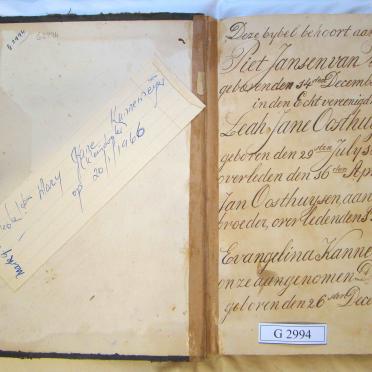 G 2994
G 2994
Mary Jane Kannemeyer
(kleindogter)
op 20/1/1966
Deze bybel behoort aan
Piet Jansen van
geboren den 14den Decemb
in den Echt vereenigd
Leah Jane Oosthuy
geboren den 29sten July
overleden den 16den Ap
Jan Oosthuysen aan
broeder, overleden den
Evangelina Kanne
onze aangenomen D
geboren den 26sten Dece
G 2994